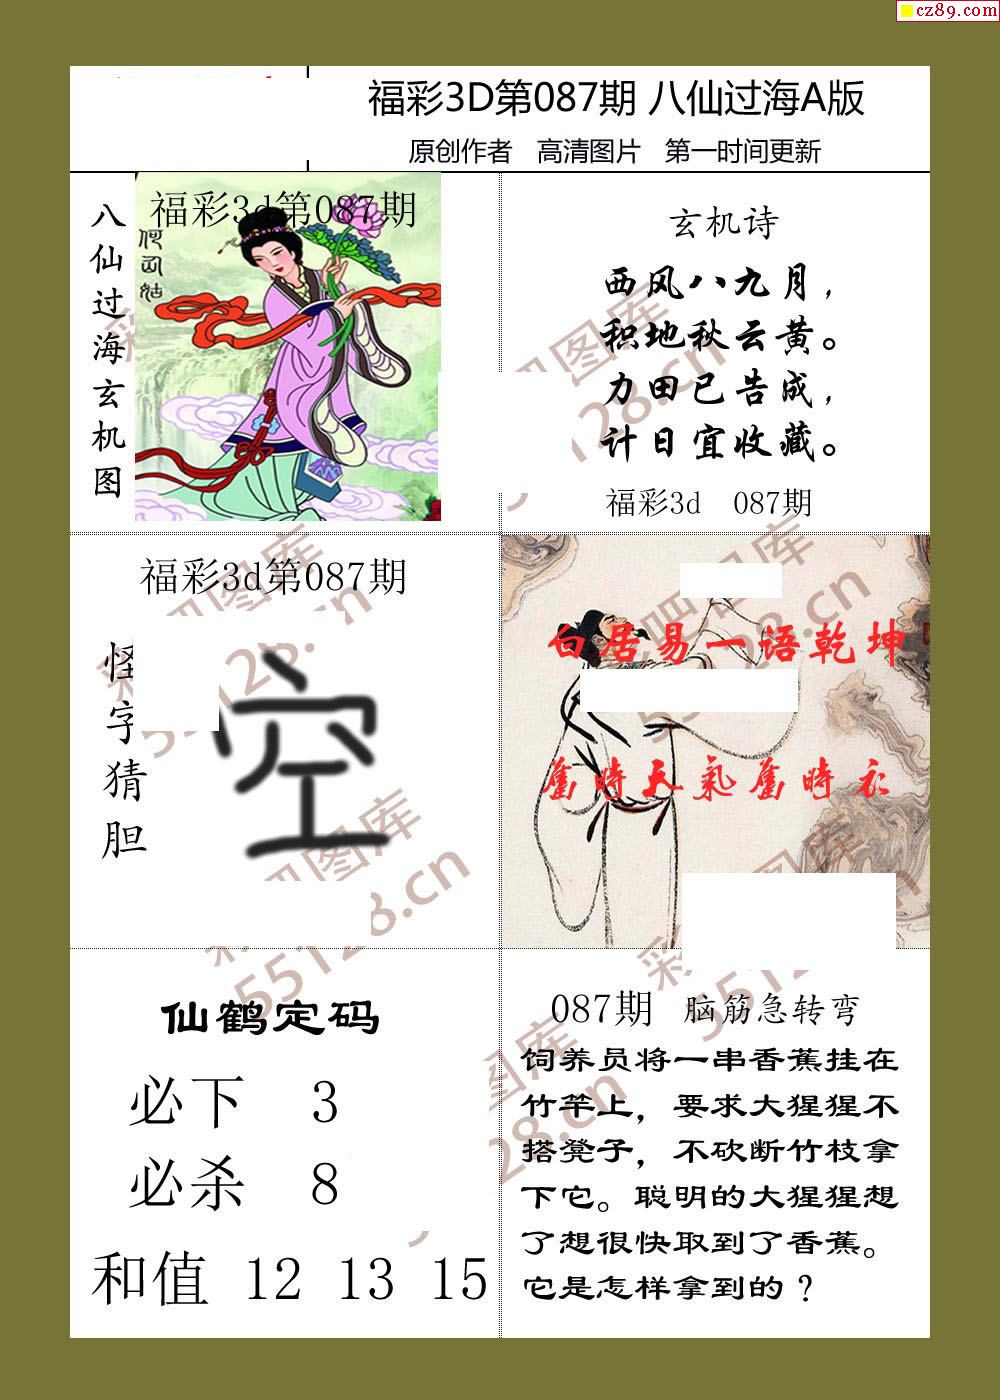 cz89.com
福彩3D第087期 八仙过海A版
原创作者 高清图片 第一时间更新
八仙过海玄机图
福彩3d第087期
何仙姑
玄机诗
西风八九月，
积地秋云黄。
力田已告成，
计日宜收藏。
福彩3d 087期
福彩3d第087期
怪字猜胆
空
白居易一语乾坤
旧時天氣旧時衣
仙鹤定码
必下 3
必杀 8
和值 12 13 15
087期 脑筋急转弯
饲养员将一串香蕉挂在
竹竿上，要求大猩猩不
搭凳子，不砍断竹枝拿
下它。聪明的大猩猩想
了想很快取到了香蕉。
它是怎样拿到的？
彩吧图库
55128.cn